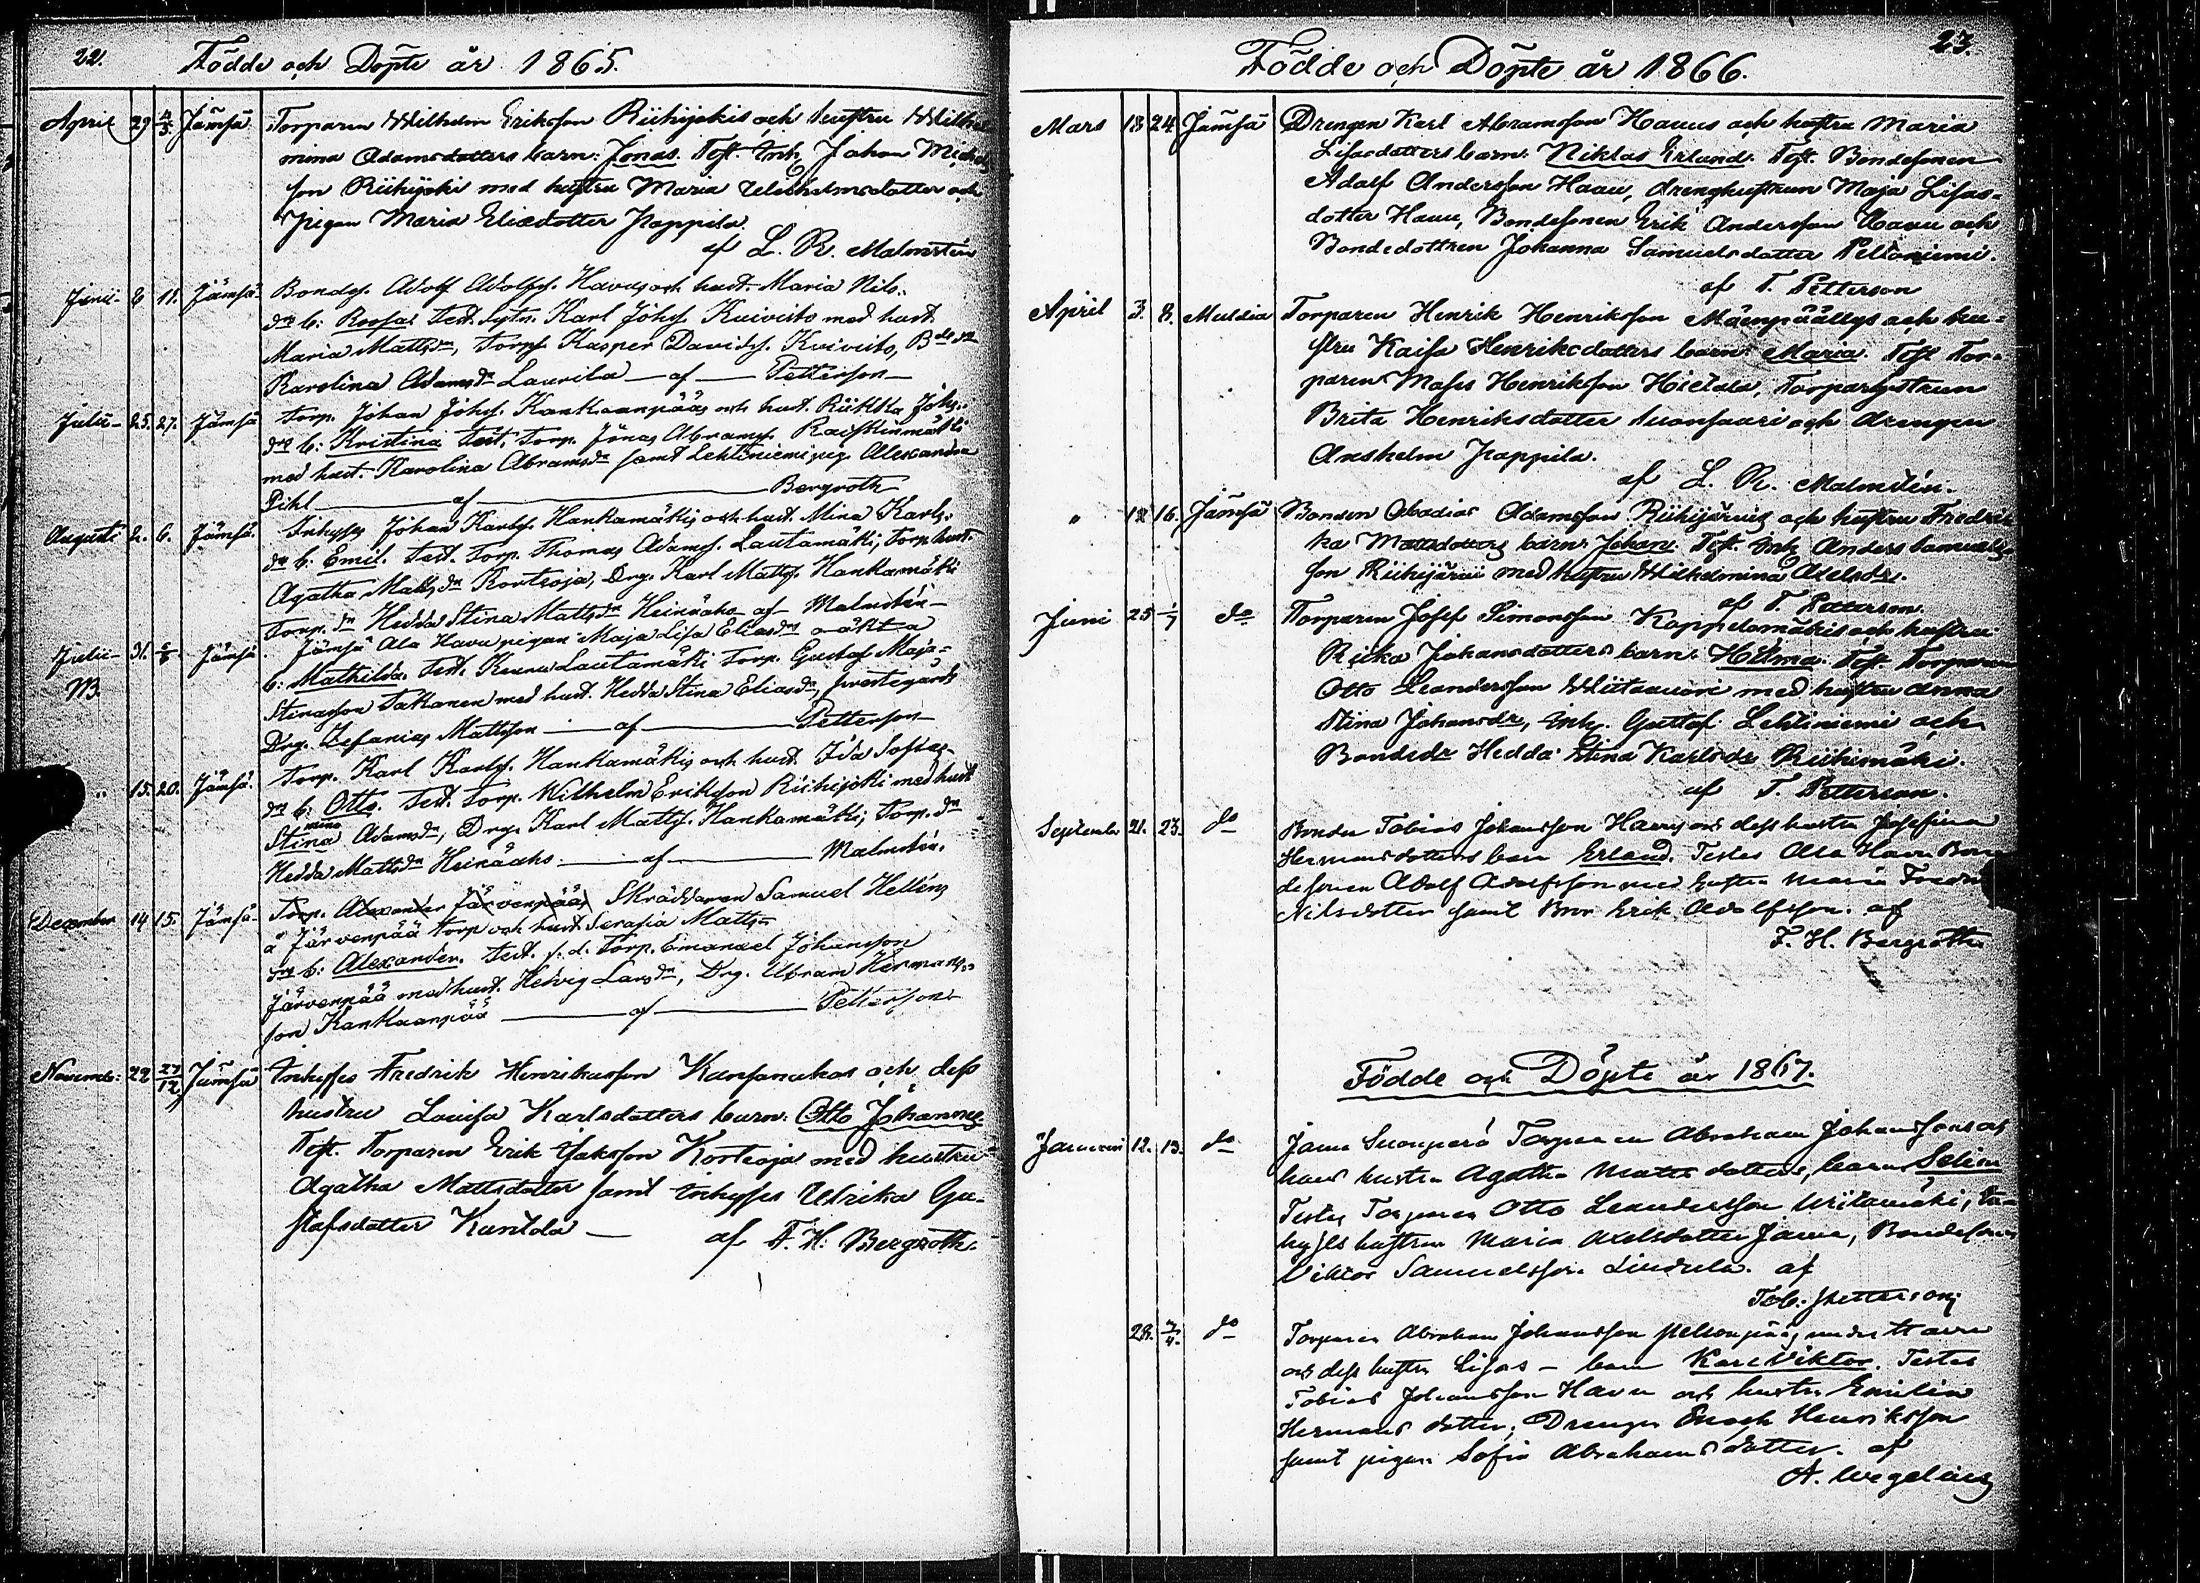 22.
Födde och Döpte år 1865.
April 29 4/5 Jämsä Torparen Wilhelm Eriksson Riihijokis och hustru Wilhel
mina Adamsdotters barn: Jonas. Test. Inh. Johan Michels
son Riihijoki med hustru Maria Wilhelmsdotter och
Pigan Maria Eliædotter Pappila.
af L. R. Malmstén
Junii 6 11. Jämsä. Bondes. Adolf Adolfss. Havus och hust. Maria Nils-
drs b: Roosa. Test. Karl Johss. Kuivisto med hust.
Maria Mattsdr, Torps. Kasper Davidss. Kuivisto, Bdedr
Karolina Adamsdr Laurila — af — Petterson —
Julii 25. 27. Jämsä Torp. Johan Johss. Kankaanpääs och hust. Riikka Johs-
drs b: Kristina Test. Torp. Jonas Abramss. Raiskinmäki
med hust. Karolina Abramsdr samt Lehtiniemi pig. Alexandra
Pihl — af — Bergroth
Augusti 2. 6. Jämsä. Inhyses Johan Karlss. Hankamäkis och hust. Mina Karls-
drs b: Emil. Test. Torp. Thomas Adamss. Lautamäki, Torp. hust.
Agatha Mattsdr Kortesoja, Drg. Karl Mattss. Hankamäki
Torp. dr Hedda Stina Mattsdr Heinäaho af Malmstén —
Julii 31. 6/8 Jämsä Jämsä Ala Havu pigan Maja Lisa Eliasdrs oäkta
b: Mathilda. Test. Lautamäki Torp. Gustaf Maja-
Stinasson Takanen med hust. Hedda Stina Eliasdr, prestegårds
Drg. Zefanias Mattsson — af — Petterson —
" 15. 20. Jämsä. Torp. Karl Karlss. Hankamäkis och hust. Ida Sofias-
dr b: Otto. Test. Torp. Wilhelm Eriksson Riihijoki med hust
mina
Stina Adamsdr, Drg. Karl Mattss. Hankamäki, Torp. dr
Hedda Mattsdr Heinäaho — af — Malmstén.
December 14 15. Jämsä. Torp. Alexander Järvenpääs Skräddaren Samuel Helléns
å Järvenpää torp och hust Serafia Matts-
drs b: Alexander. Test. s. d. Torp. Emanuel Johansson
Järvenpää med hust. Hedvig Larsdr, Drg. Abram Hermans-
son Kankaanpää — af — Petterson
Novemb: 22 27/12 Jämsä Inhyses Fredrik Henriksson Kansanahos och dess
hustru Lovisa Karlsdotters barn: Otto Johannes
Test. Torparen Erik Isaksson Kortesoja med hustru
Agatha Mattsdotter samt inhyses Ulrika Gu-
stafsdotter Kuntola — af F. H. Bergroth.
23.
Födde och Döpte år 1866.
Mars 18 24 Jämsä Drengen Karl Abramsson Havus och hustru Maria
Lisasdotters barn: Niklas Erland. Test. Bondesonen
Adolf Andersson Havu, drenghustrun Maja Lisas-
dotter Havu, Bondesonen Erik Andersson Havu och
Bondedottren Johanna Samuelsdotter Peltoniemi.
af T. Petterson
April 3. 8. Muldia Torparen Henrik Henriksson Mäenpäällys och hu-
stru Kaisa Henriksdotters barn: Maria. Test Tor-
paren Matts Henriksson Hietala, Torparhustrun
Brita Henriksdotter Suonsaari och drengen
Anshelm Pappila.
af L. R. Malmstén.
" 12 16. Jämsä Bonden Abadias Adamsson Riihijärvis och hustru Fredri
ka Mattsdotters barn: Johan. Test. Inh Anders Samuels-
son Riihijärvi med hustru Wilhelmina Axelsdr.
af T. Petterson.
Juni 25 1/7 do Torparen Josef Simonsson Kappelomäkis och hustru
Riika Johansdotters barn: Hilma. Test. Torparen
Otto Leandersson Wiitavuori med hustru Anna
Stina Johansdr, Inh. Gustaf Lehtiniemi och
Bondedr Hedda Stina Karlsdr Riihimäki.
af T. Petterson.
September 21. 23. do Bonden Tobias Johansson Havus och dess hustru Josefina
Hermansdotters barn Erland. Testes Ala Havu Bon
desonen Adolf Adolfsson med hustru Maria Fredri
Nilsdotter samt Bror Erik Adolfsson. af
F. H. Bergroth
Födde och Döpte år 1867.
Januari 12. 13. do Jämsä Suonperä Torparen Abraham Johanssons och
hans hustru Agatha Mattsdotters, barn Selim
Testes Torparen Otto Leandersson Wiitamäki, In-
hyses hustrun Maria Axelsdotter Jämsä, Bondeson
Viktor Samuelsson Lindula. af
Tob. Petterson
28. 7/4. do Torparen Abraham Johansson Peltonpääs under Havu
och dess hustru Lisas — barn Karl Viktor. Testes
Tobias Johansson Havu och hustru Emilia
Hermans dotter, Drengen Enoch Henriksson
samt pigan Sofia Abrahamsdotter. af
A. Wegelius